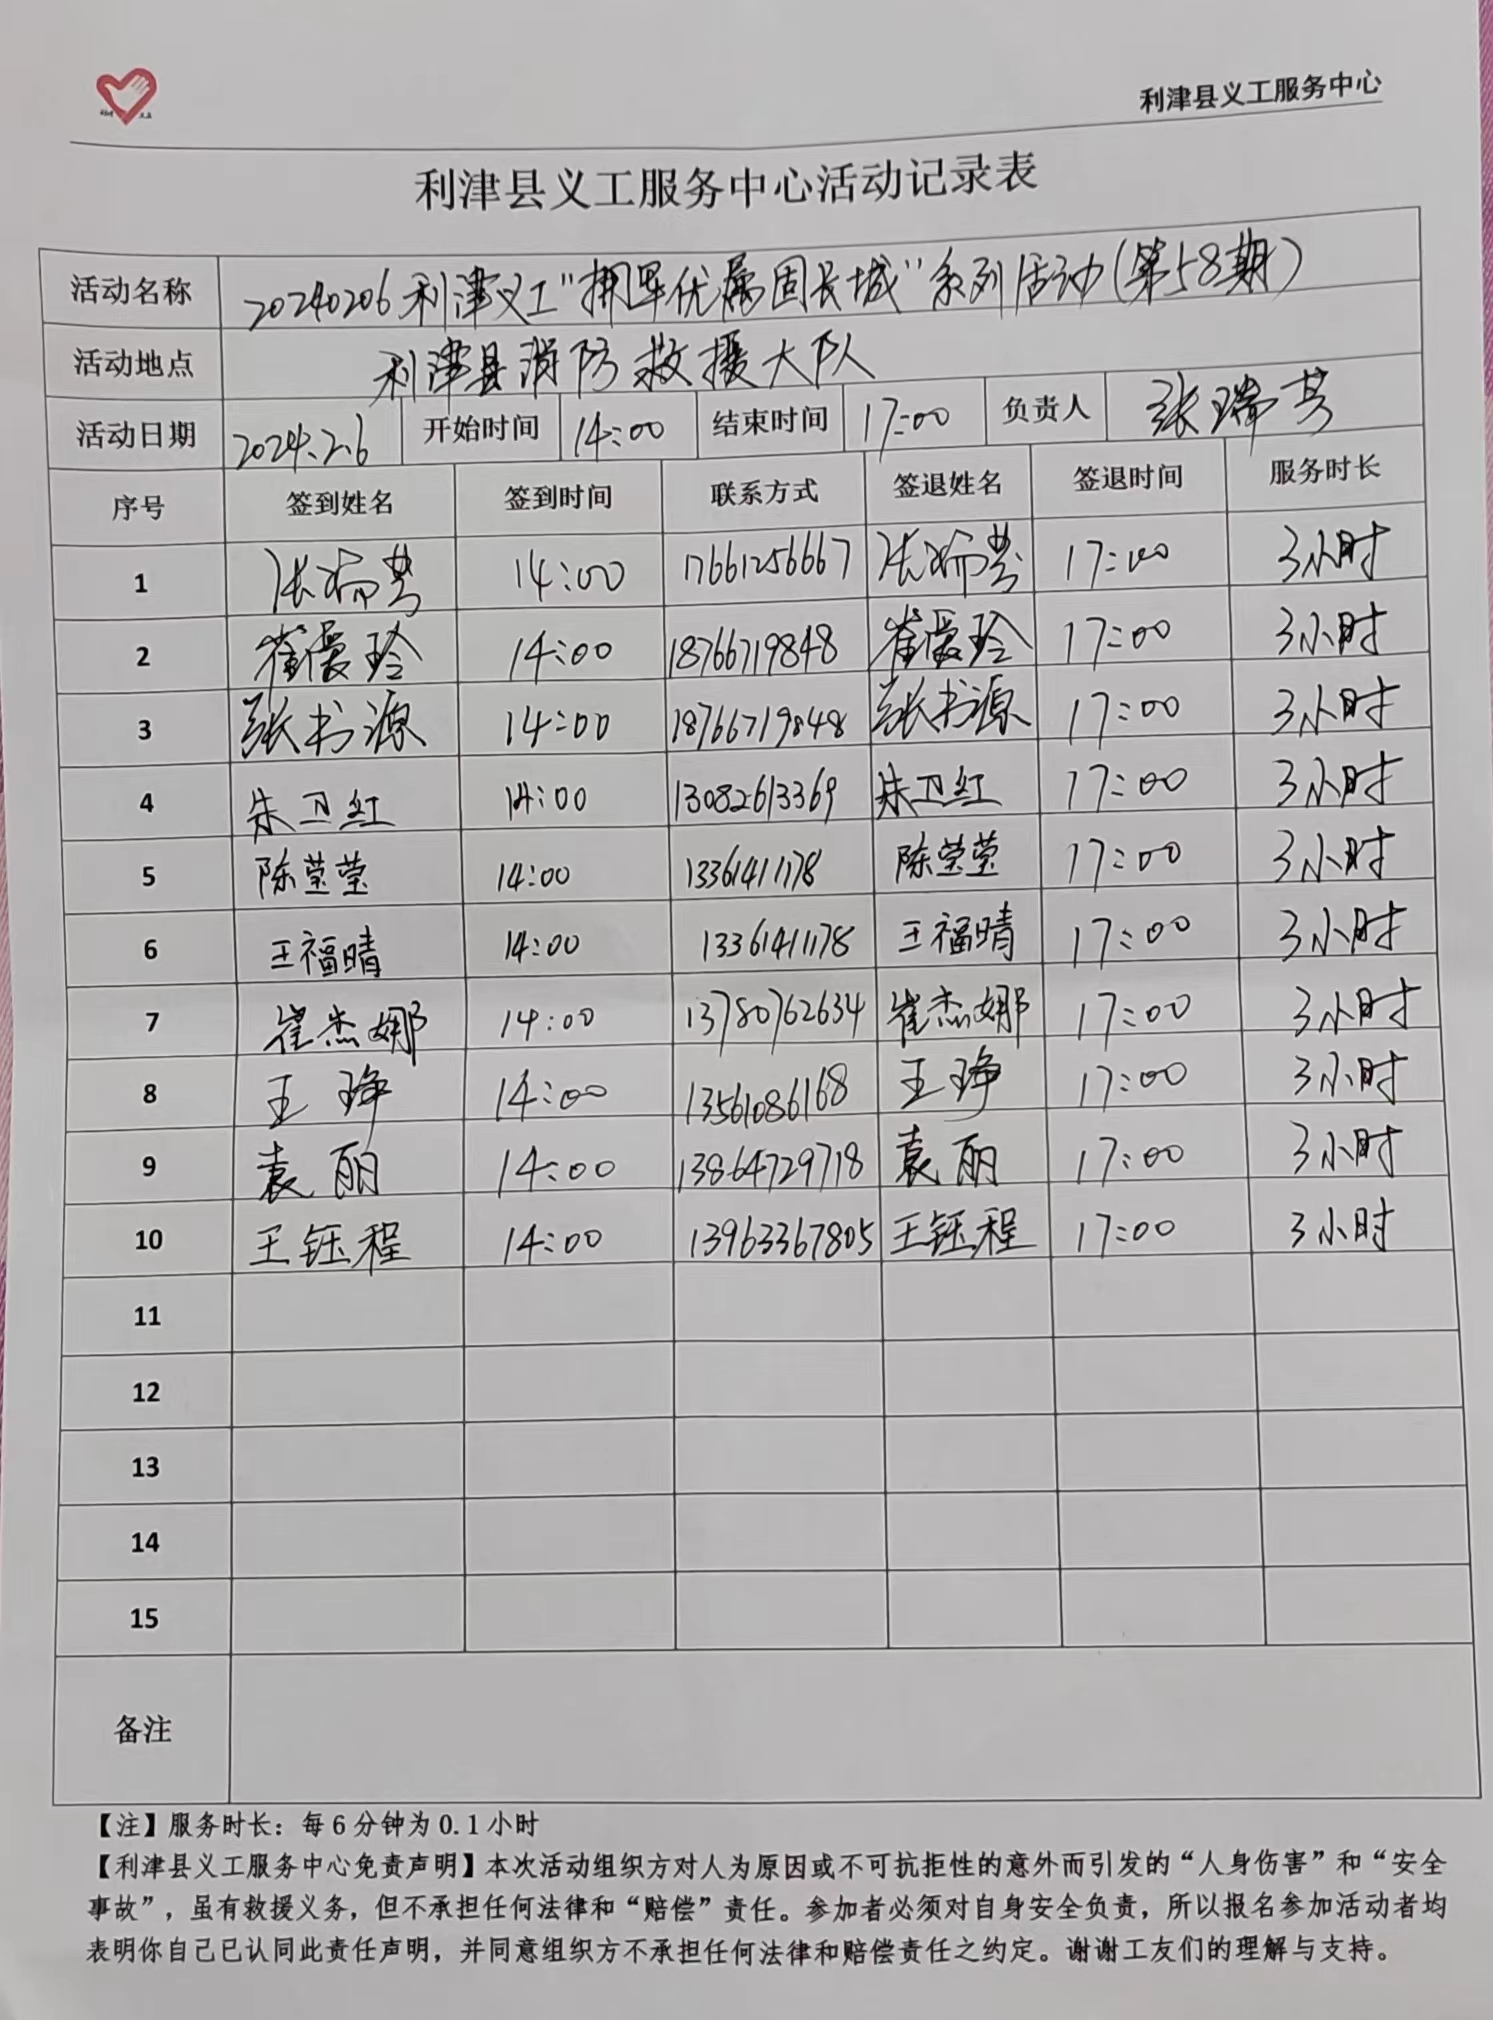 利津县义工服务中心
利津县义工服务中心活动记录表
活动名称 20240206利津义工“拥军优属固长城”系列活动(第58期)
活动地点 利津县消防救援大队
活动日期 2024.2.6 开始时间 14:00 结束时间 17:00 负责人 张瑞芳
序号 签到姓名 签到时间 联系方式 签退姓名 签退时间 服务时长
1 张瑞芳 14:00 17661256667 张瑞芳 17:00 3小时
2 崔爱玲 14:00 18766719848 崔爱玲 17:00 3小时
3 张书源 14:00 18766719848 张书源 17:00 3小时
4 朱卫红 14:00 13082613369 朱卫红 17:00 3小时
5 陈莹莹 14:00 13361411178 陈莹莹 17:00 3小时
6 王福晴 14:00 13361411178 王福晴 17:00 3小时
7 崔杰娜 14:00 13780762634 崔杰娜 17:00 3小时
8 王琤 14:00 13561086168 王琤 17:00 3小时
9 袁丽 14:00 13864729718 袁丽 17:00 3小时
10 王钰程 14:00 13963367805 王钰程 17:00 3小时
11
12
13
14
15
备注
【注】服务时长：每6分钟为0.1小时
【利津县义工服务中心免责声明】本次活动组织方对人为原因或不可抗拒性的意外而引发的“人身伤害”和“安全
事故”，虽有救援义务，但不承担任何法律和“赔偿”责任。参加者必须对自身安全负责，所以报名参加活动者均
表明你自己已认同此责任声明，并同意组织方不承担任何法律和赔偿责任之约定。谢谢工友们的理解与支持。